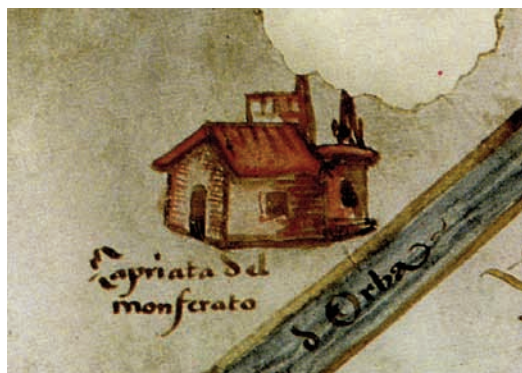 Capriata del
monferato
d Orba